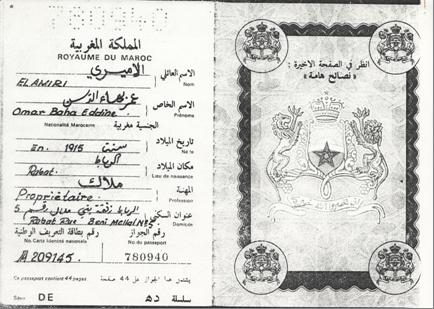 780940
المملكة المغربية
ROYAUME DU MAROC
الاسم العائلي الاميري
ELAMIRI Nom
الاسم الخاص عمر بهاء الدين
Omar Baha Eddine Prénoms
الجنسية مغربية
Nationalité Marocaine
تاريخ الميلاد سنة 1915
En. 1915 Né le
مكان الميلاد الرباط
Rabat. Lieu de naissance
المهنة ملاك
Propriétaire. Profession
عنوان السكنى الرباط زنقة بني ملال رقم 5
Rabat Rue Beni Mellal N°5 Domicile
رقم الجواز رقم بطاقة التعريف الوطنية
No. Carte Identité nationale No du passeport
A 209145. 780940
Ce passeport contient 44 pages يشتمل هذا الجواز على 44 صفحة
Série DE سلسلة ده
انظر في الصفحة الاخيرة :
« نصائح هامة »